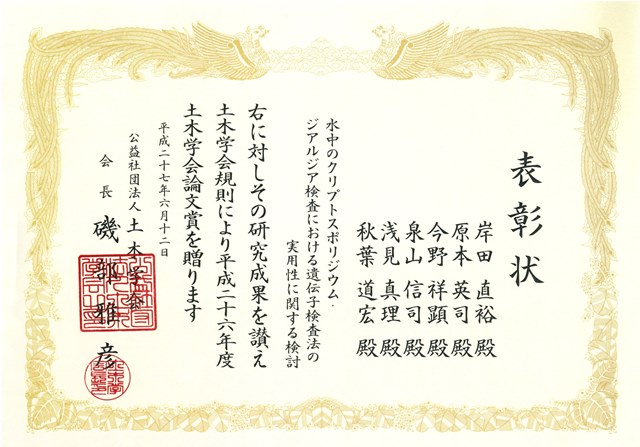 表彰状
岸田 直裕 殿
原本 英司 殿
今野 祥顕 殿
泉山 信司 殿
浅見 真理 殿
秋葉 道宏 殿
水中のクリプトスポリジウム・
ジアルジア検査における遺伝子検査法の
実用性に関する検討
右に対しその研究成果を讃え
土木学会規則により平成二十六年度
土木学会論文賞を贈ります
平成二十七年六月十二日
公益社団法人 土木学会
会長 磯部雅彦